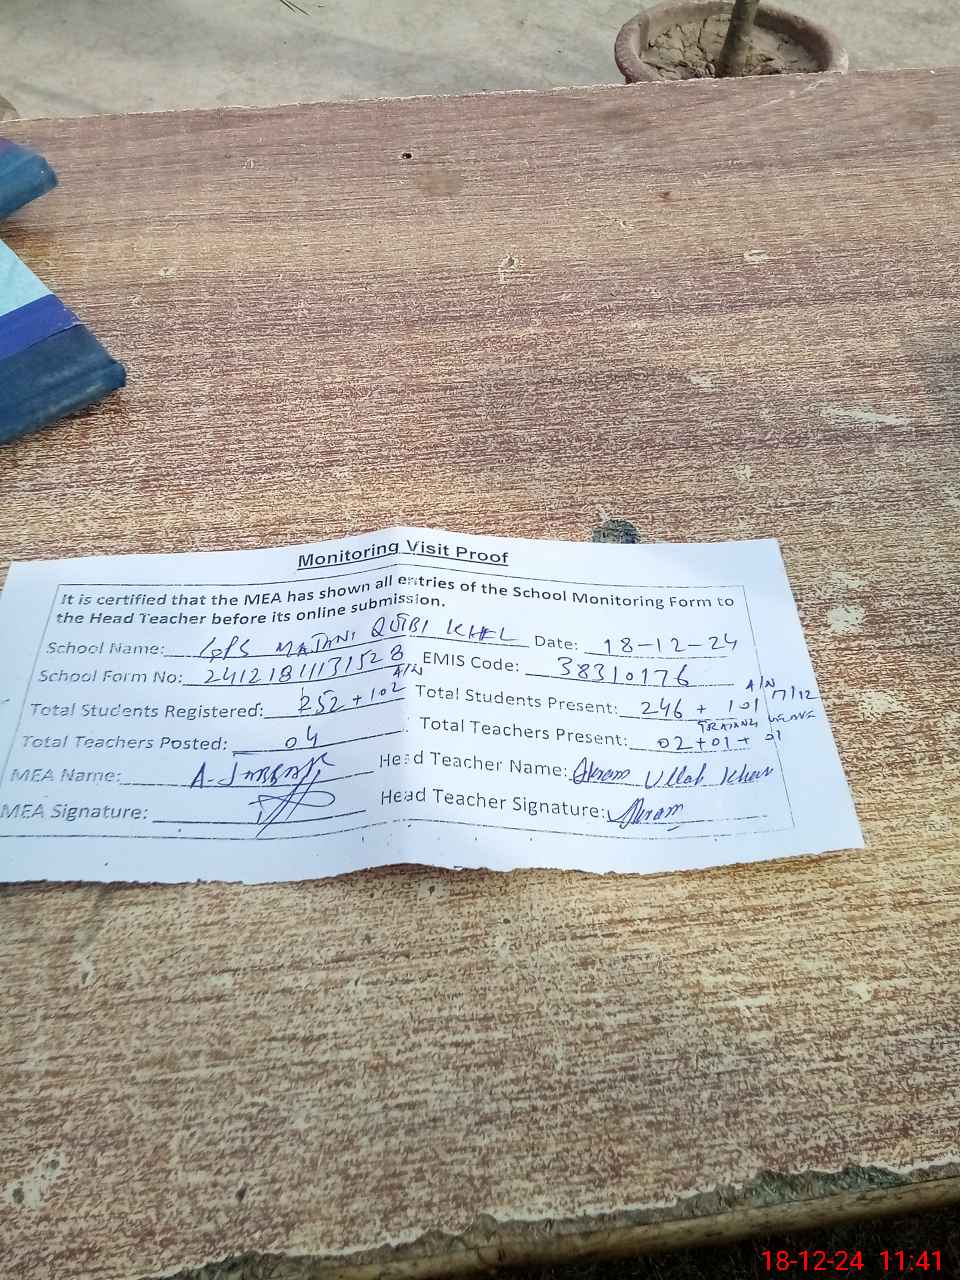 Monitoring Visit Proof
It is certified that the MEA has shown all entries of the School Monitoring Form to
the Head Teacher before its online submission.
School Name: GPS MATANI QUTBI KHEL Date: 18-12-24
School Form No: 24121811131528 EMIS Code: 38310176
A/N A/N 17/12
Total Students Registered: 252 + 102 Total Students Present: 246 + 101
Total Teachers Posted: 04 Total Teachers Present: 02 + 01 + 01
MEA Name: A. Head Teacher Name: Akram Ullah Khan
MEA Signature: Head Teacher Signature: Akram
18-12-24 11:41